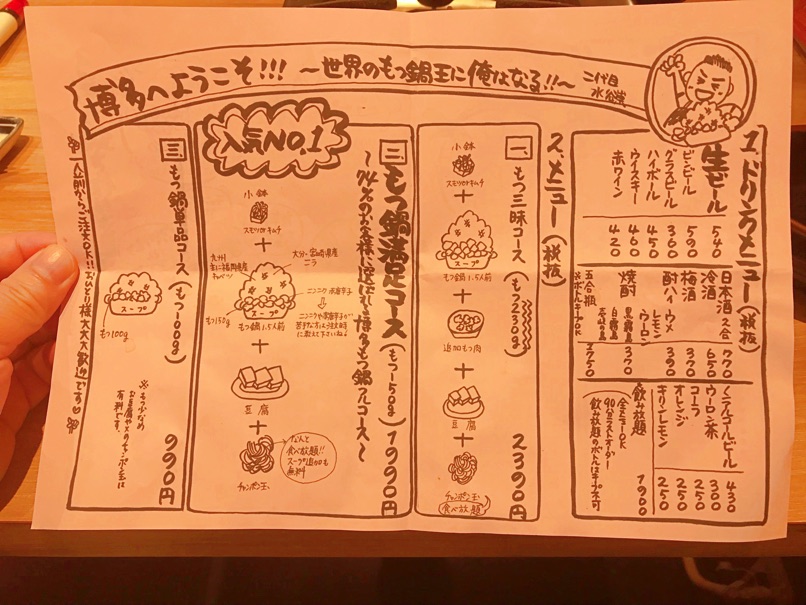 博多へようこそ!!! ～世界のもつ鍋王に俺はなる!!～
二代目
水谷崇
1.ドリンクメニュー(税抜)
生ビール 540
ビンビール 590
グラスビール 360
ハイボール 450
ウイスキー 460
赤ワイン 420
日本酒 2合 770
冷酒 650
梅酒 370
酎ハイ ウメ 390
レモン
ウーロン
焼酎 370
黒霧島
白霧島
壱岐の島
五合瓶 2750
※ボトルキープOK
ノンアルコールビール 430
ウーロン茶 300
コーラ 250
オレンジ 250
キリンレモン 250
飲み放題 1900
全メニューOK
90分ラストオーダー
飲み放題のボトルはキープ不可
2.メニュー(税抜)
一、もつ三昧コース(もつ230g) 2390円
小鉢
スモツ or キムチ
+
スープ
もつ鍋1.5人前
+
追加もつ肉
+
豆腐
+
チャンポン玉
食べ放題
人気NO.1
二、もつ鍋満足コース(もつ150g) 1990円
～74%のお客様に選ばれる博多もつ鍋フルコース～
小鉢
スモツ or キムチ
+
大分・宮崎県産
ニラ
九州
主に福岡県産
キャベツ
ニンニク 赤唐辛子
ニンニクや赤唐辛子が
苦手な方は注文時に
教えて下さいね♪
スープ
もつ150g
もつ鍋1.5人前
+
豆腐
+
チャンポン玉
なんと
食べ放題!!
スープ追加も
無料
三、もつ鍋単品コース(もつ100g) 990円
スープ
もつ100g
※もつ少なめ
お豆腐や〆のチャンポン玉は
有料です。
一人前からご注文OK!! おひとり様大大大歓迎です♡